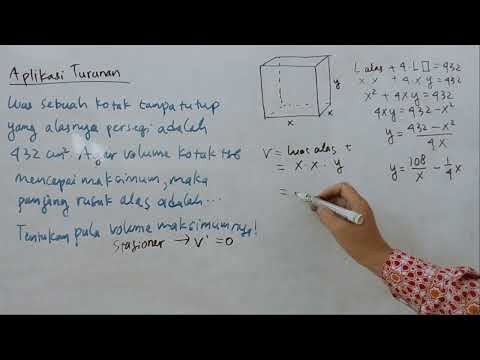 Aplikasi Turunan
Luas sebuah kotak tanpa tutup
yang alasnya persegi adalah
432 cm². Agar volume kotak tsb
mencapai maksimum, maka
panjang rusuk alas adalah...
Tentukan pula volume maksimumnya!
Stasioner → V' = 0
y
x
x
L alas + 4·L□ = 432
x·x + 4·x y = 432
x² + 4xy = 432
4xy = 432 - x²
y = 432 - x² / 4x
y = 108/x - 1/4 x
V = luas alas · t
= x·x · y
=